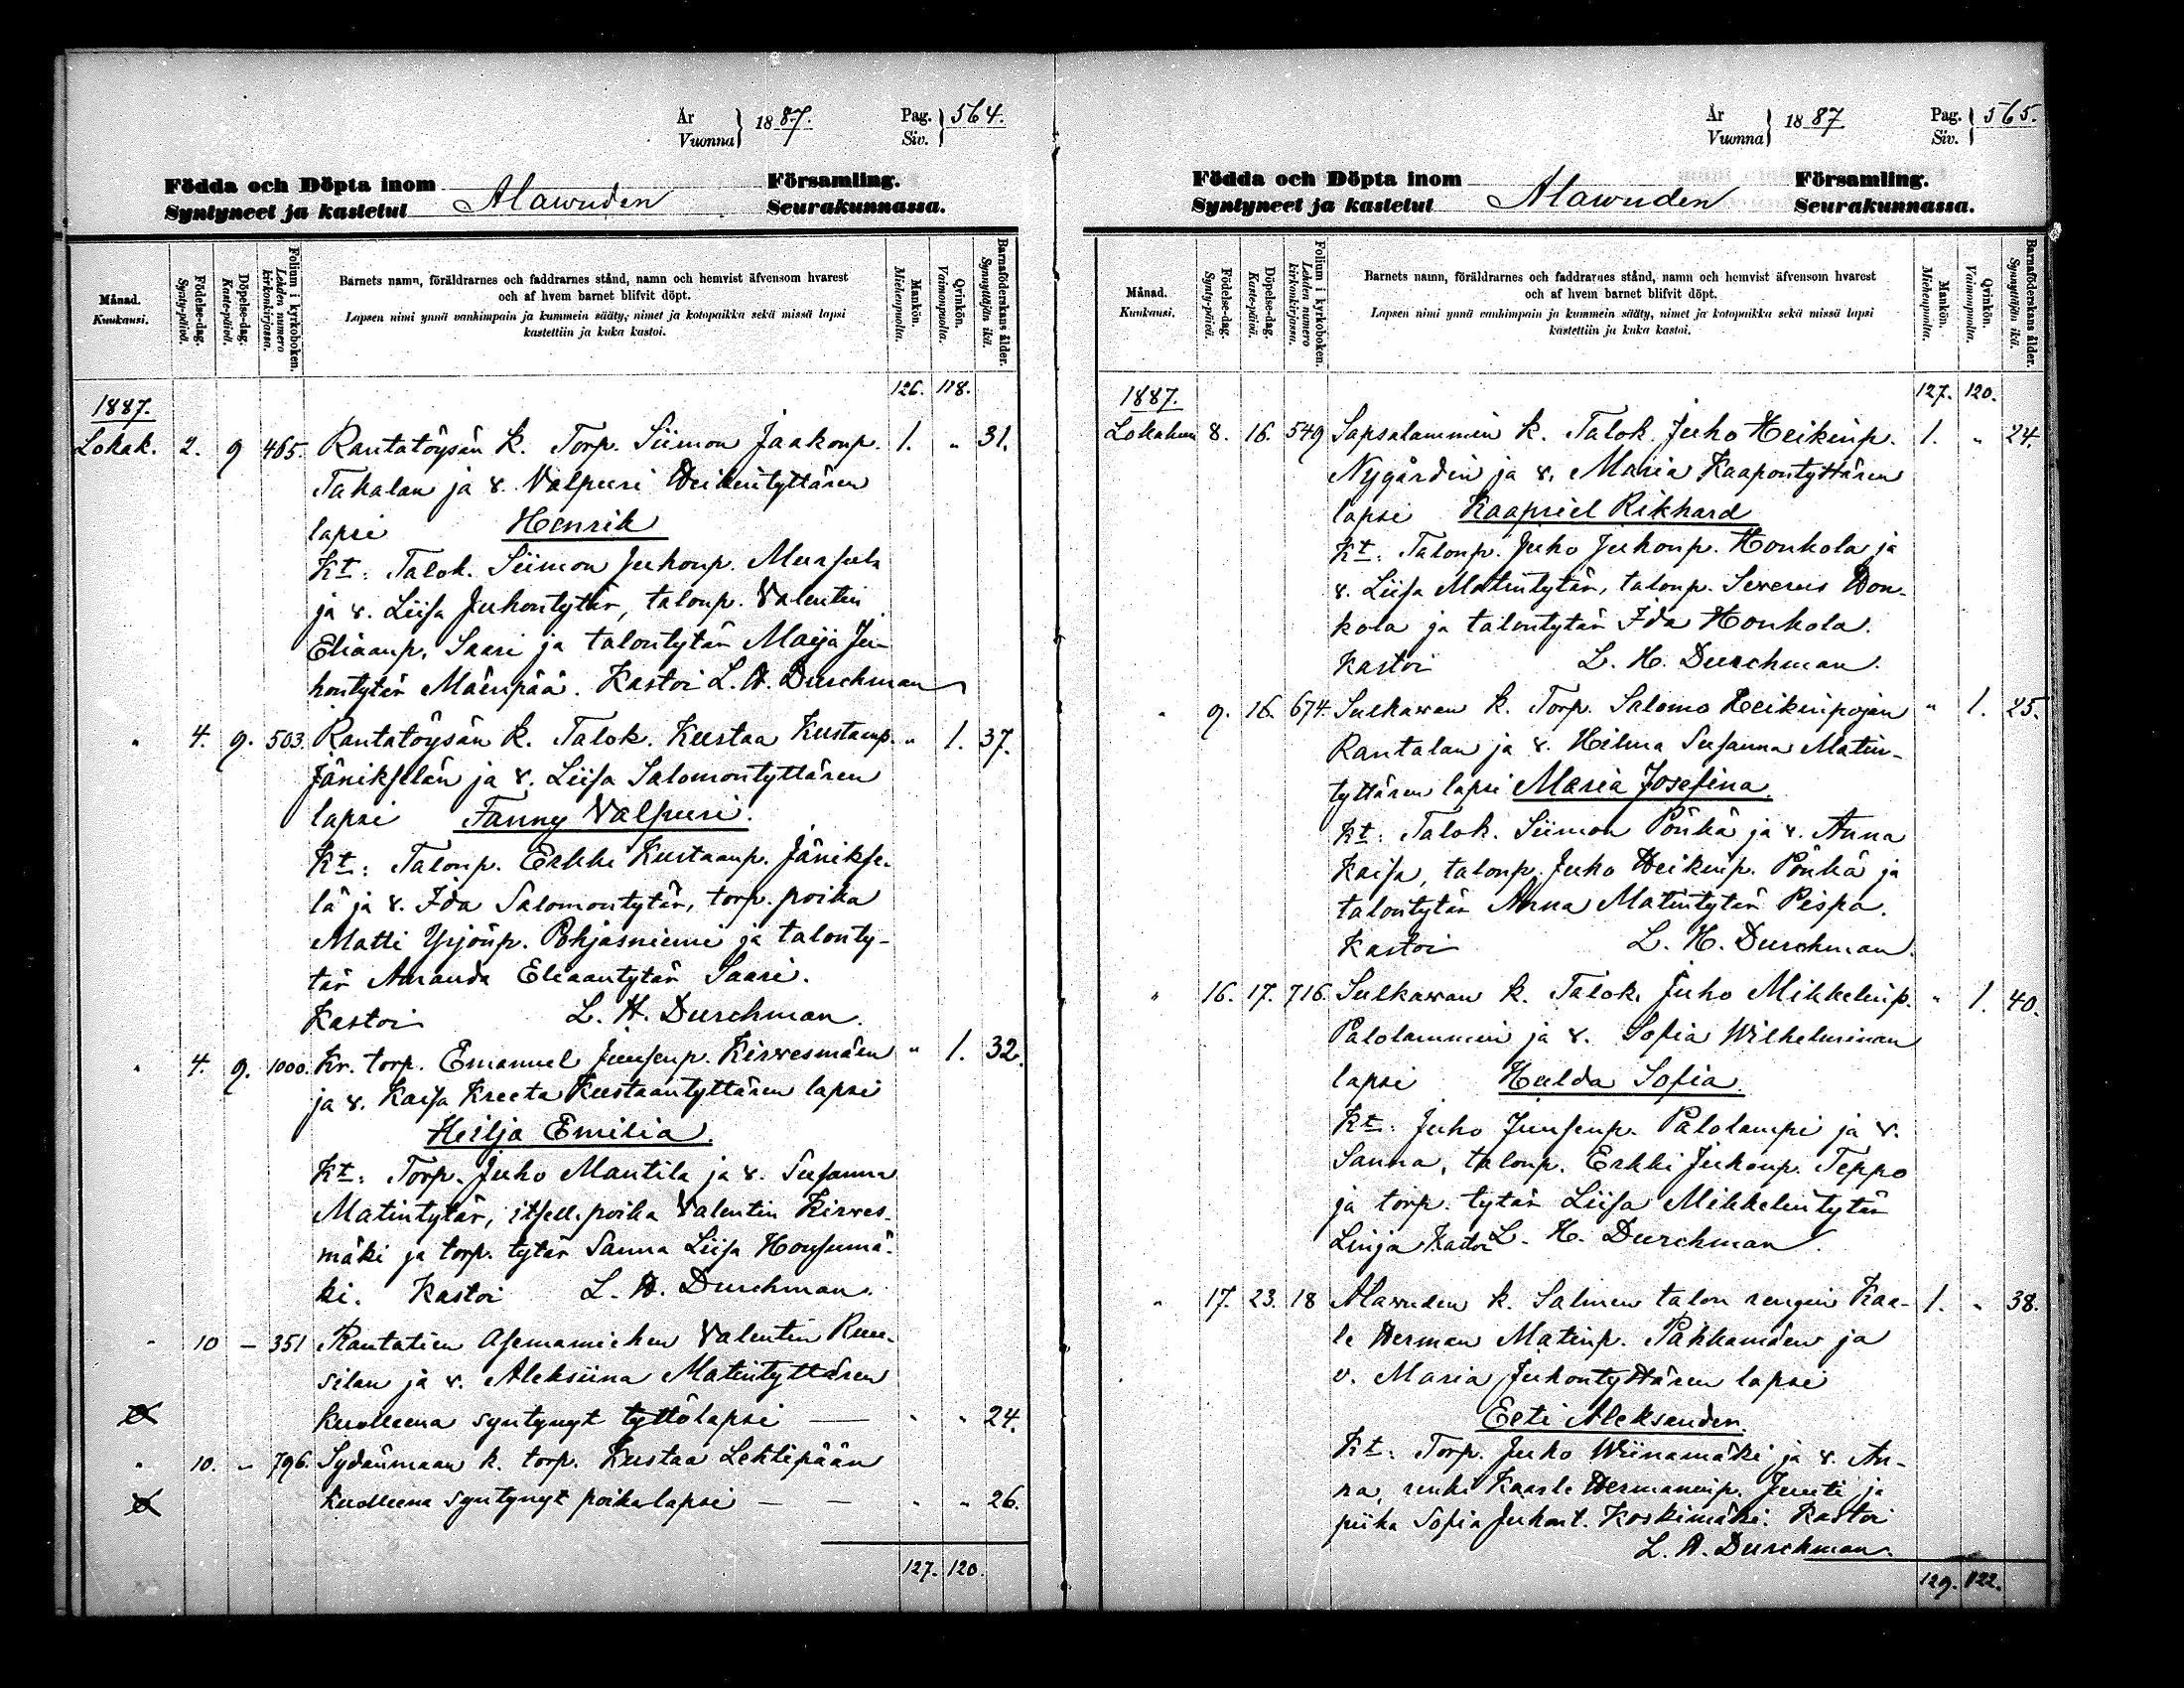 År
Vuonna } 1887. Pag.
Siv. } 564.
Födda och Döpta inom Alawuden Församling.
Syntyneet ja kastetut Seurakunnassa.
Månad.
Kuukausi.
Födelse-dag.
Synty-päivä.
Döpelse-dag.
Kaste-päivä.
Folium i kyrkoboken.
Lehden numero
kirkonkirjassa.
Barnets namn, föräldrarnes och faddrarnes stånd, namn och hemvist äfvensom hvarest
och af hvem barnet blifvit döpt.
Lapsen nimi ynnä vanhimpain ja kummein sääty, nimet ja kotopaikka sekä missä lapsi
kastettiin ja kuka kastoi.
Mankön.
Miehenpuolta.
Qvinkön.
Vaimonpuolta.
Barnaföderskans ålder.
Synnyttäjän ikä.
126. 118.
1887.
Lokak. 2. 9 465. Rantatöysän k. Torp. Siimon Jaakonp. 1. " 31.
Takalan ja v. Valpuri Heikintyttären
lapsi Henrik
Kt: Talok. Siimon Juhonp.
ja v. Liisa Juhontytär, talonp. Valentin
Eliaanp. Saari ja talontytär Maija Ju-
hontytär Mäenpää. Kastoi L. H. Durchman
" 4. 9. 503. Rantatöysän k. Talok. Kustaa Kustaanp. " 1. 37.
Jänikselän ja v. Liisa Salomontyttären
lapsi Fanny Valpuri.
Kt: Talonp. Erkki Kustaanp. Jänikse-
lä ja v. Ida Salomontytär, torp. poika
Matti Yrjönp. Pohjasniemi ja talonty-
tär Amanda Eliaantytär Saari.
Kastoi L. H. Durchman.
" 4. 9. 1000. Kr. torp. Emanuel Juusenp. Kirwesmäen " 1. 32.
ja v. Kaisa Kreeta Kustaantyttären lapsi
Heilja Emilia.
Kt: Torp. Juho Mantila ja v. Susanna
Matintytär, itsell. poika Valentin Kirwes-
mäki ja torp. tytär Sanna Liisa Honsumä-
ki. Kastoi L. H. Durchman.
" 10 – 351 Rantatien Asemamiehen Valentin Ruu-
silan ja v. Aleksiina Matintyttären
kuolleena syntynyt tyttölapsi — " " 24.
" 10. – 796. Sydänmaan k. torp. Kustaa Lehtipään
kuolleena syntynyt poikalapsi — — " " 26.
127. 120.
År
Vuonna } 1887 Pag.
Siv. } 565.
Födda och Döpta inom Alawuden Församling.
Syntyneet ja kastetut Seurakunnassa.
Månad.
Kuukausi.
Födelse-dag.
Synty-päivä.
Döpelse-dag.
Kaste-päivä.
Folium i kyrkoboken.
Lehden numero
kirkonkirjassa.
Barnets namn, föräldrarnes och faddrarnes stånd, namn och hemvist äfvensom hvarest
och af hvem barnet blifvit döpt.
Lapsen nimi ynnä vanhimpain ja kummein sääty, nimet ja kotopaikka sekä missä lapsi
kastettiin ja kuka kastoi.
Mankön.
Miehenpuolta.
Qvinkön.
Vaimonpuolta.
Barnaföderskans ålder.
Synnyttäjän ikä.
127. 120.
1887.
Lokakuu 8. 16. 549 Sapsalammin k. Talok. Juho Heikinp. 1. " 24.
Nygårdin ja v. Maria Kaapontyttären
lapsi Kaapriel Rikhard
Kt: Talonp. Juho Juhonp. Honkola ja
v. Liisa Matintytär, talonp. Sewerus Hon-
kola ja talontytär Ida Honkola.
Kastoi L. H. Durchman.
" 9. 16. 674. Sulkawan k. Torp. Salomo Heikinpojan " 1. 25.
Rantalan ja v. Hilma Susanna Matin-
tyttären lapsi Maria Josefina.
Kt: Talok. Siimon Pönkä ja v. Anna
Kaisa, talonp. Juho Heikinp. Pönkä ja
talontytär Anna Matintytär Pispa.
Kastoi L. H. Durchman.
" 16. 17. 716. Sulkawan k. Talok. Juho Mikkelinp. " 1. 40.
Palolammin ja v. Sofia Wilhelminan
lapsi Hulda Sofia.
Kt: Juho Juusenp. Palolampi ja v.
Sanna, talonp. Erkki Juhonp. Teppo
ja torp. tytär Liisa Mikkelintytär
Linja Kastoi L. H. Durchman.
" 17. 23. 18 Alawuden k. Salmen talon rengin Kaa- 1. " 38.
le Herman Matinp. Pakkamäen ja
v. Maria Juhontyttären lapsi
Eeti Aleksander.
Kt: Torp. Juho Wiinamäki ja v. An-
na, renki Kaarle Hermaninp. Juuti ja
piika Sofia Juhont. Koskimäki. Kastoi
L. H. Durchman.
129. 122.